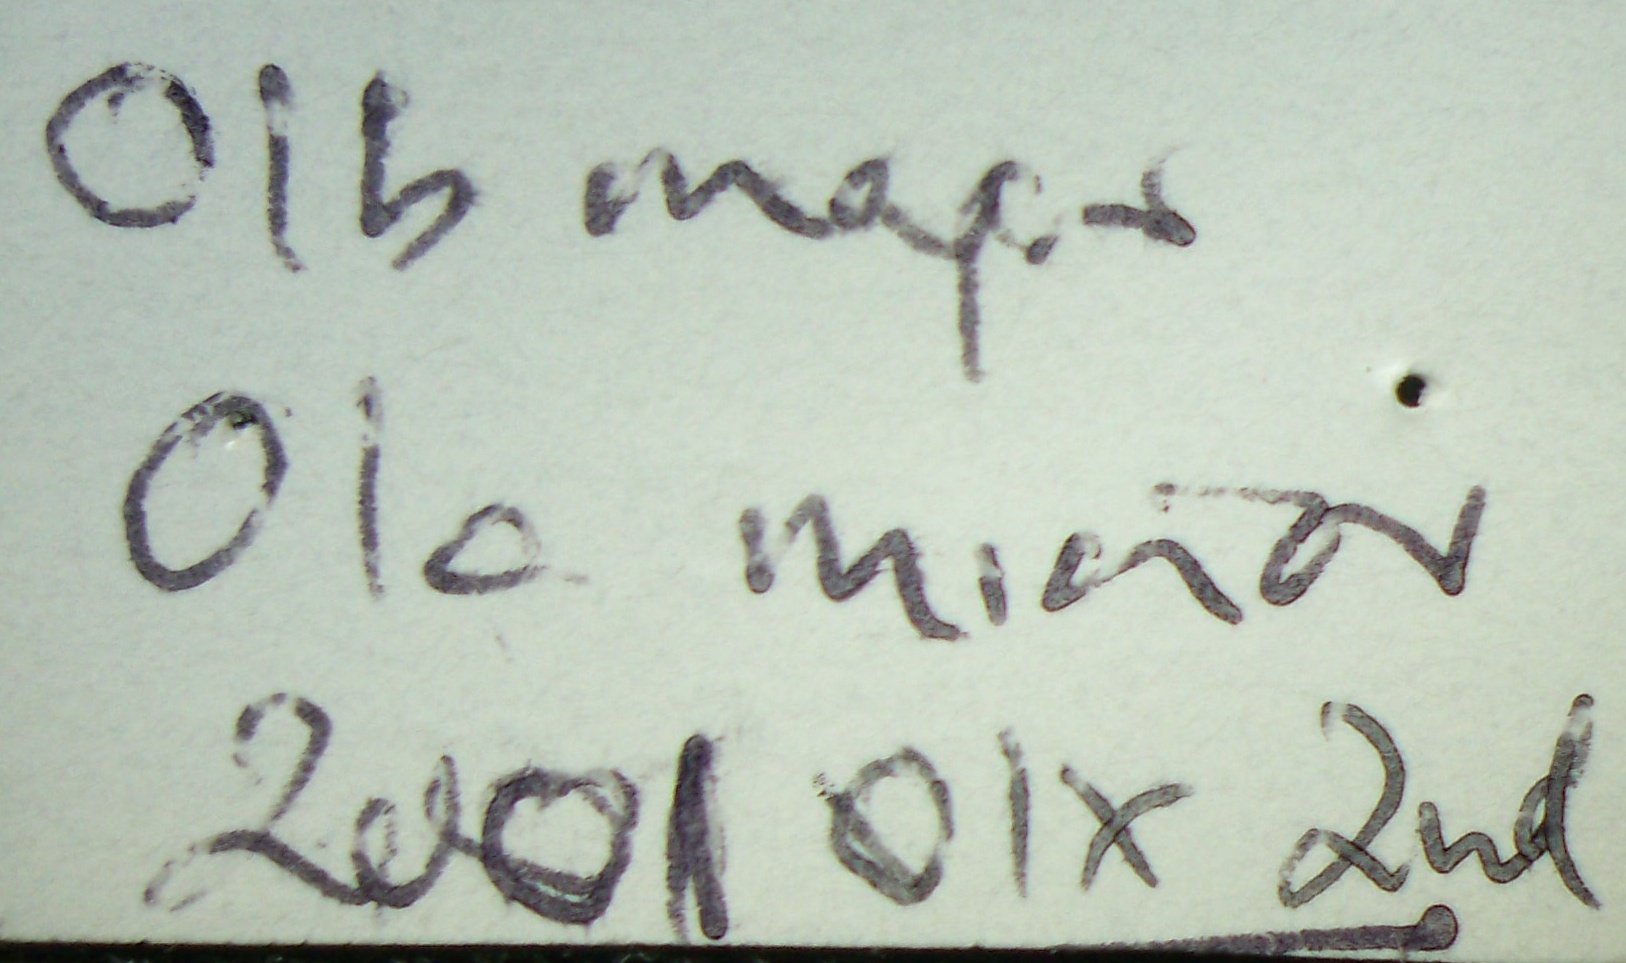 01b major
01a minor
2001 01x 2nd